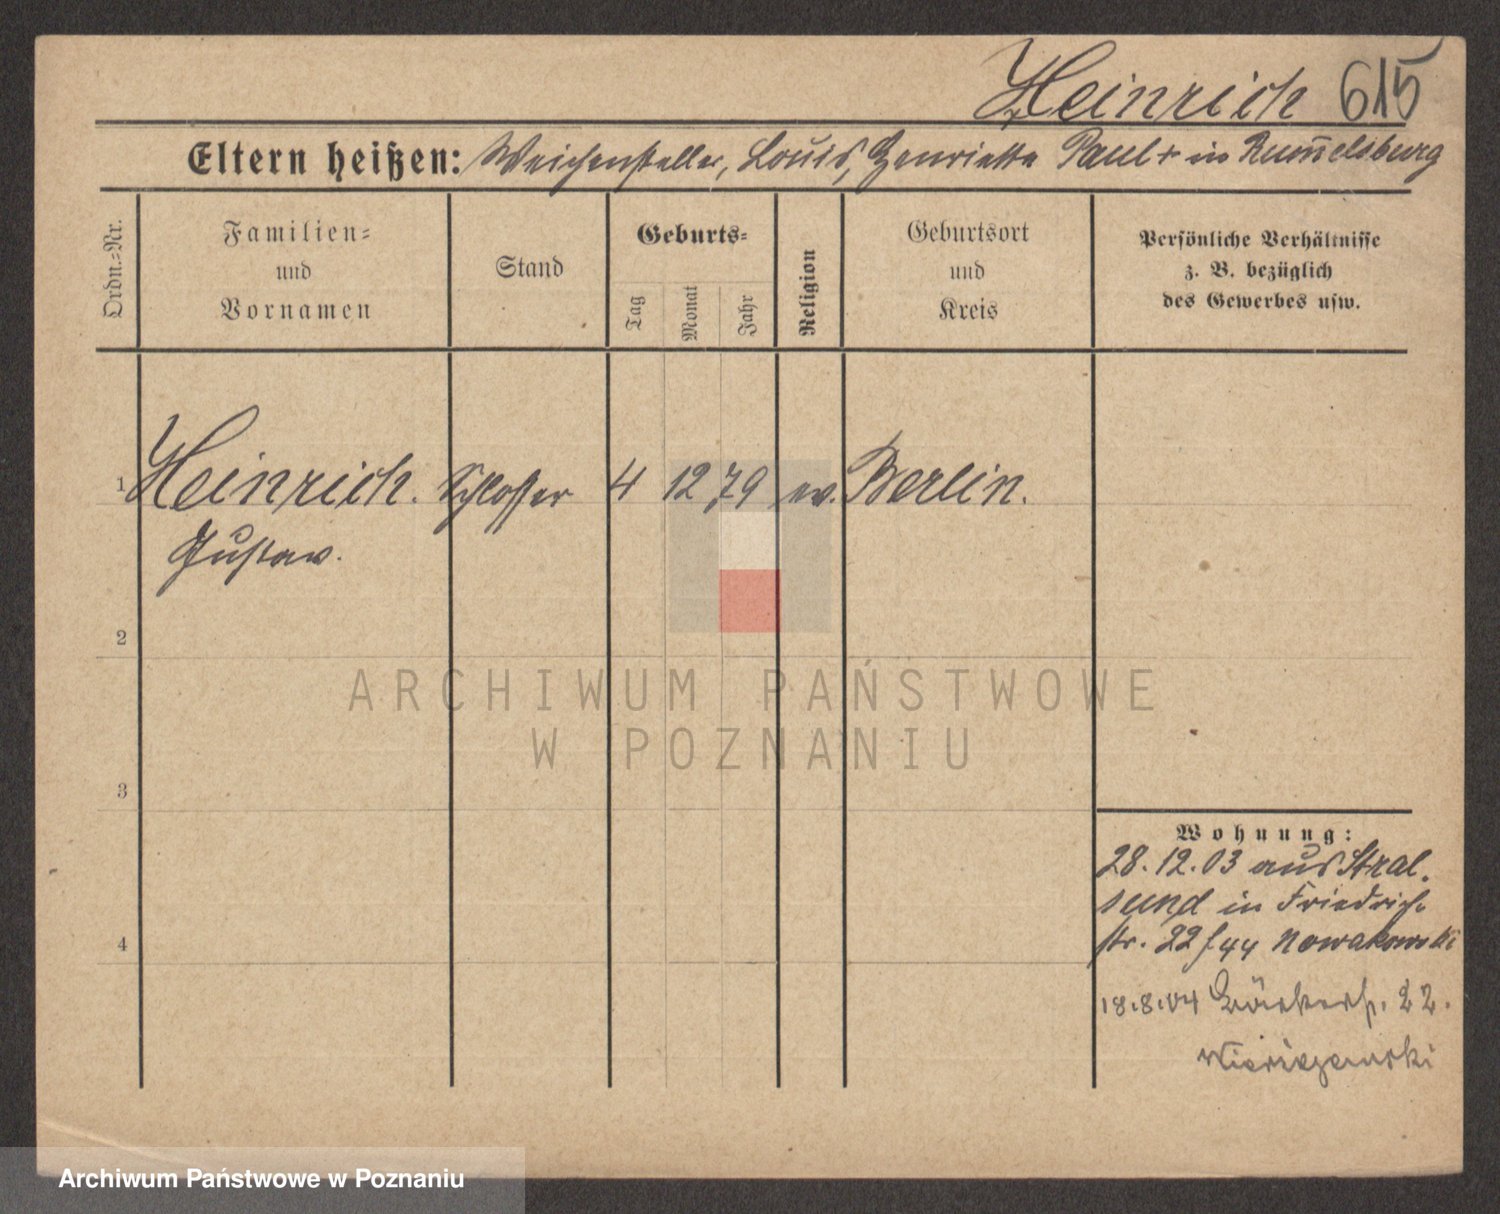 Heinrich 615
Eltern heißen: Weichensteller, Louis, Henriette Paul + in Rummelsburg
Ordn.-Nr.
Familien=
und
Vornamen
Stand
Geburts=
Tag
Monat
Jahr
Religion
Geburtsort
und
Kreis
Persönliche Verhältnisse
z. B. bezüglich
des Gewerbes usw.
1 Heinrich. Schlosser 4 12 79 ev. Berlin.
Gustav.
2
3
4
Wohnung:
28.12.03 aus Stral.
sund in Friedrich
str. 22 f 44 Nowakowski
18.8.04 Bäckerst. 22.
ARCHIWUM PAŃSTWOWE
W POZNANIU
Archiwum Państwowe w Poznaniu